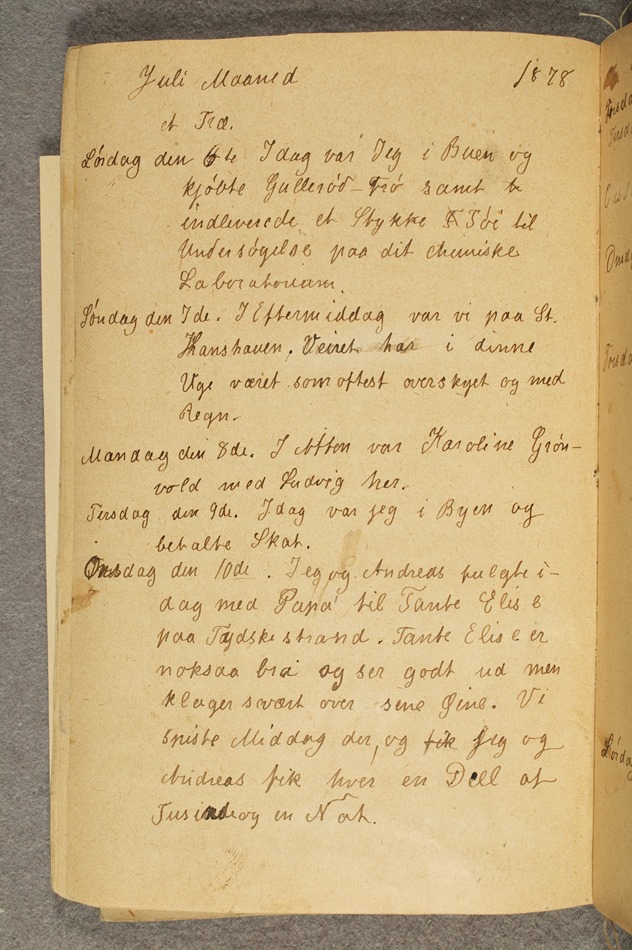 Juli Maaned 1878
et Træ.
Lørdag den 6te Idag var Jeg i Buen og
kjøbte Gullerød-Frø samt
indleverede et Stykke Tøi til
Undersøgelse paa dit chemiske
Laboratorium.
Søndag den 7de. I Eftermiddag var vi paa St.
Hanshaven. Veiret har i dinne
Uge været som oftest overskyet og med
Regn.
Mandag din 8de. I Afton var Karoline Grøn-
vold med Ludvig her.
Tirsdag den 9de. Idag var jeg i Byen og
betalte Skat.
Onsdag den 10de. Jeg og Andreas fulgte i-
dag med Papa til Tante Elise
paa Tydskestrand. Tante Elise er
noksaa bra og ser godt ud men
klager svært over sine Øine. Vi
spiste Middag der, og fik Jeg og
Andreas fik hver en Dell af
Tusindeog en Nat.